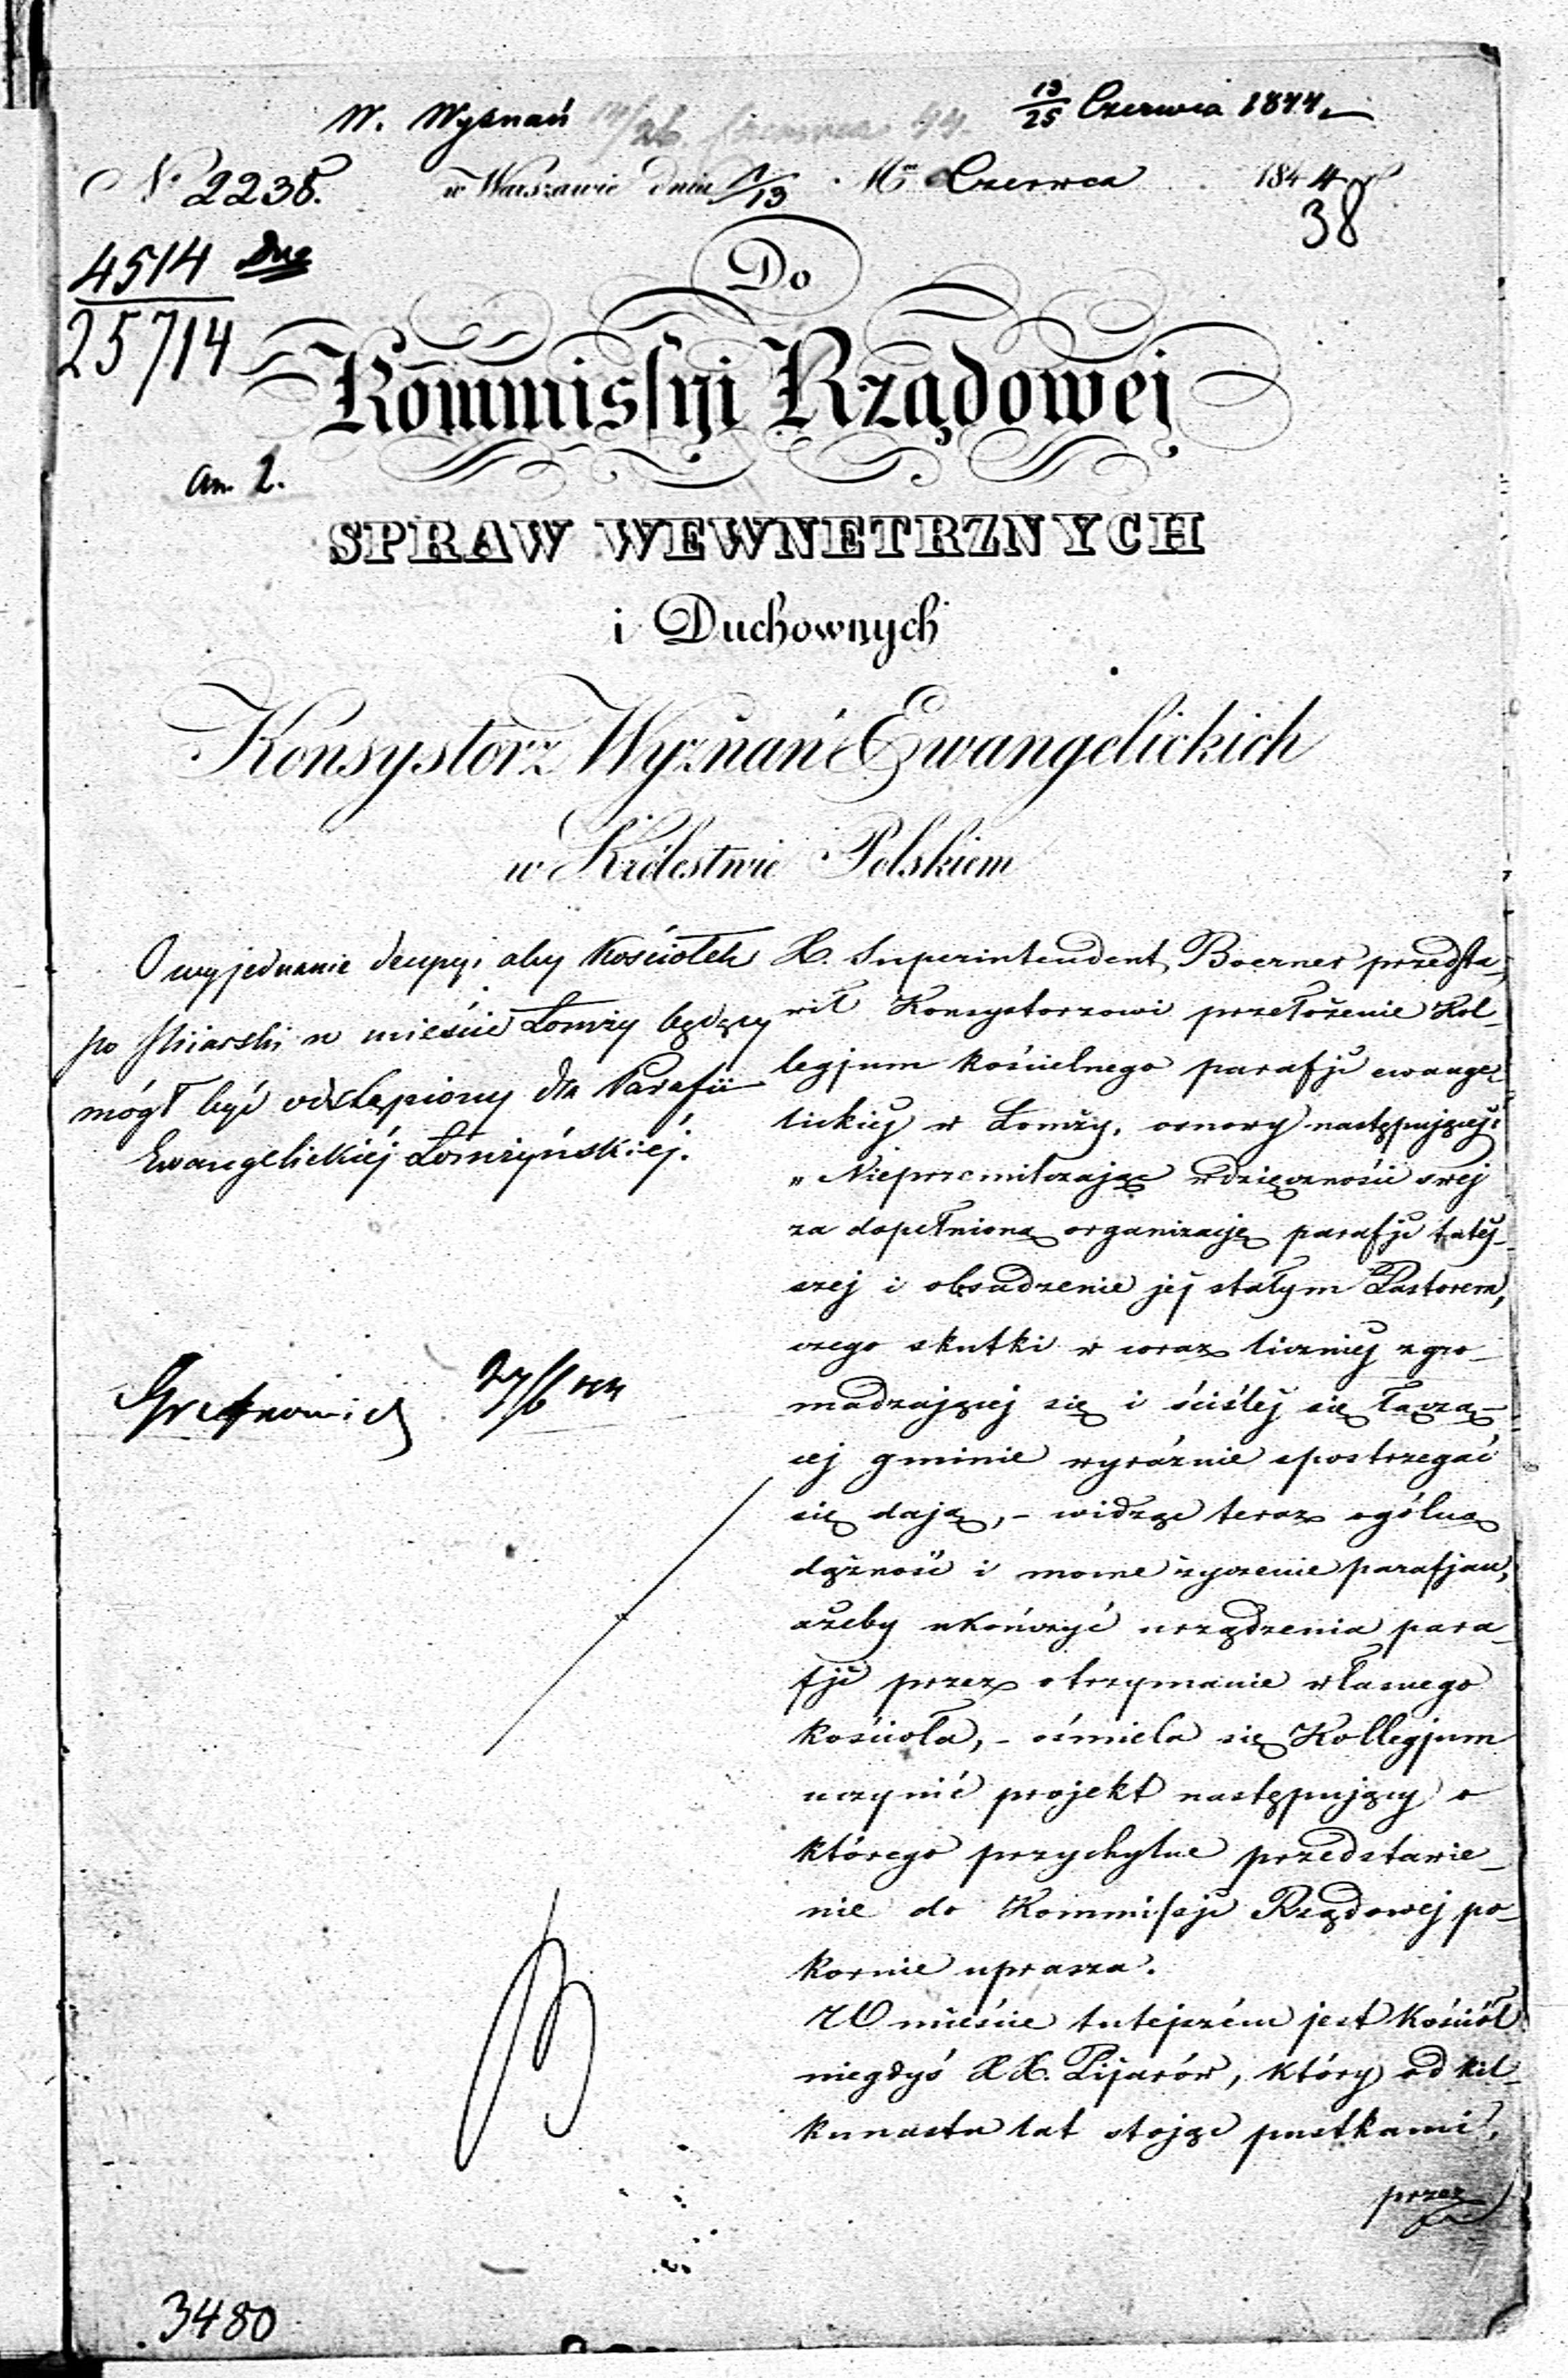 W. Wyznań
13/25 Czerwca 1844
№ 2238.
w Warszawie dnia 1/13 Mca Czerwca 1844 r
38
4514
25714
Do
Kommissyi Rządowej
an. 2.
SPRAW WEWNETRZNYCH
i Duchownych
Konsystorz Wyznań Ewangelickich
w Królestwie Polskiem
O wyjednanie decyzyi aby Kościołek
po Pijarski w mieście Łomży będący
mógł być odstąpiony dla Parafii
Ewangelickiéj Łomżyńskiéj.
27/6
X. Superintendent Boerner przedsta-
wił Konsystorzowi przełożenie Kol-
legjum kościelnego parafji ewange-
lickiej w Łomży, osnowy następującej:
„Nieprzemilczając wdzięczności swej
za dopełnioną organizację parafji tutej-
szej i obsadzenie jej stałym Pastorem,
czego skutki w coraz liczniej zgro-
madzającej się i ściślej się łączą-
cej gminie wyraźnie spostrzegać
się dają, - widząc teraz ogólną
dążność i mocne życzenie parafjan,
ażeby ukończyć urządzenia para-
fji przez otrzymanie własnego
kościoła, - ośmiela się Kollegjum
uczynić projekt następujący o
którego przychylne przedstawie-
nie do Kommissji Rządowej po-
kornie uprasza.
W mieście tutejszém jest Kościół
niegdyś XX. Pijarów, który od kil-
kunastu lat stojąc pustkami,
przez
3480